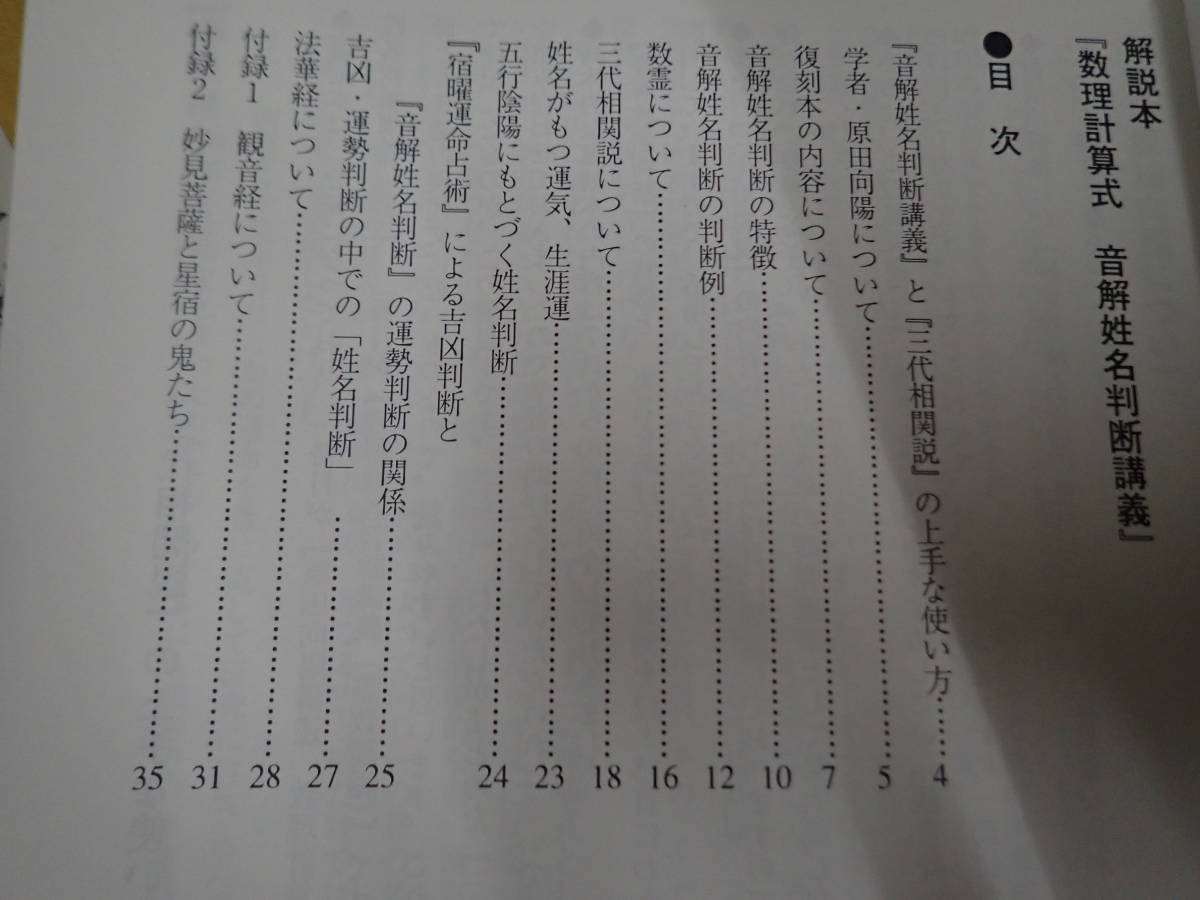 解説本
『数理計算式　音解姓名判断講義』
●目　次
『音解姓名判断講義』と『三代相関説』の上手な使い方……4
学者・原田向陽について……5
復刻本の内容について……7
音解姓名判断の特徴……10
音解姓名判断の判断例……12
数霊について……16
三代相関説について……18
姓名がもつ運気、生涯運……23
五行陰陽にもとづく姓名判断……24
『宿曜運命占術』による吉凶判断と
『音解姓名判断』の運勢判断の関係……25
吉凶・運勢判断の中での「姓名判断」……27
法華経について……28
付録1　観音経について……31
付録2　妙見菩薩と星宿の鬼たち……35